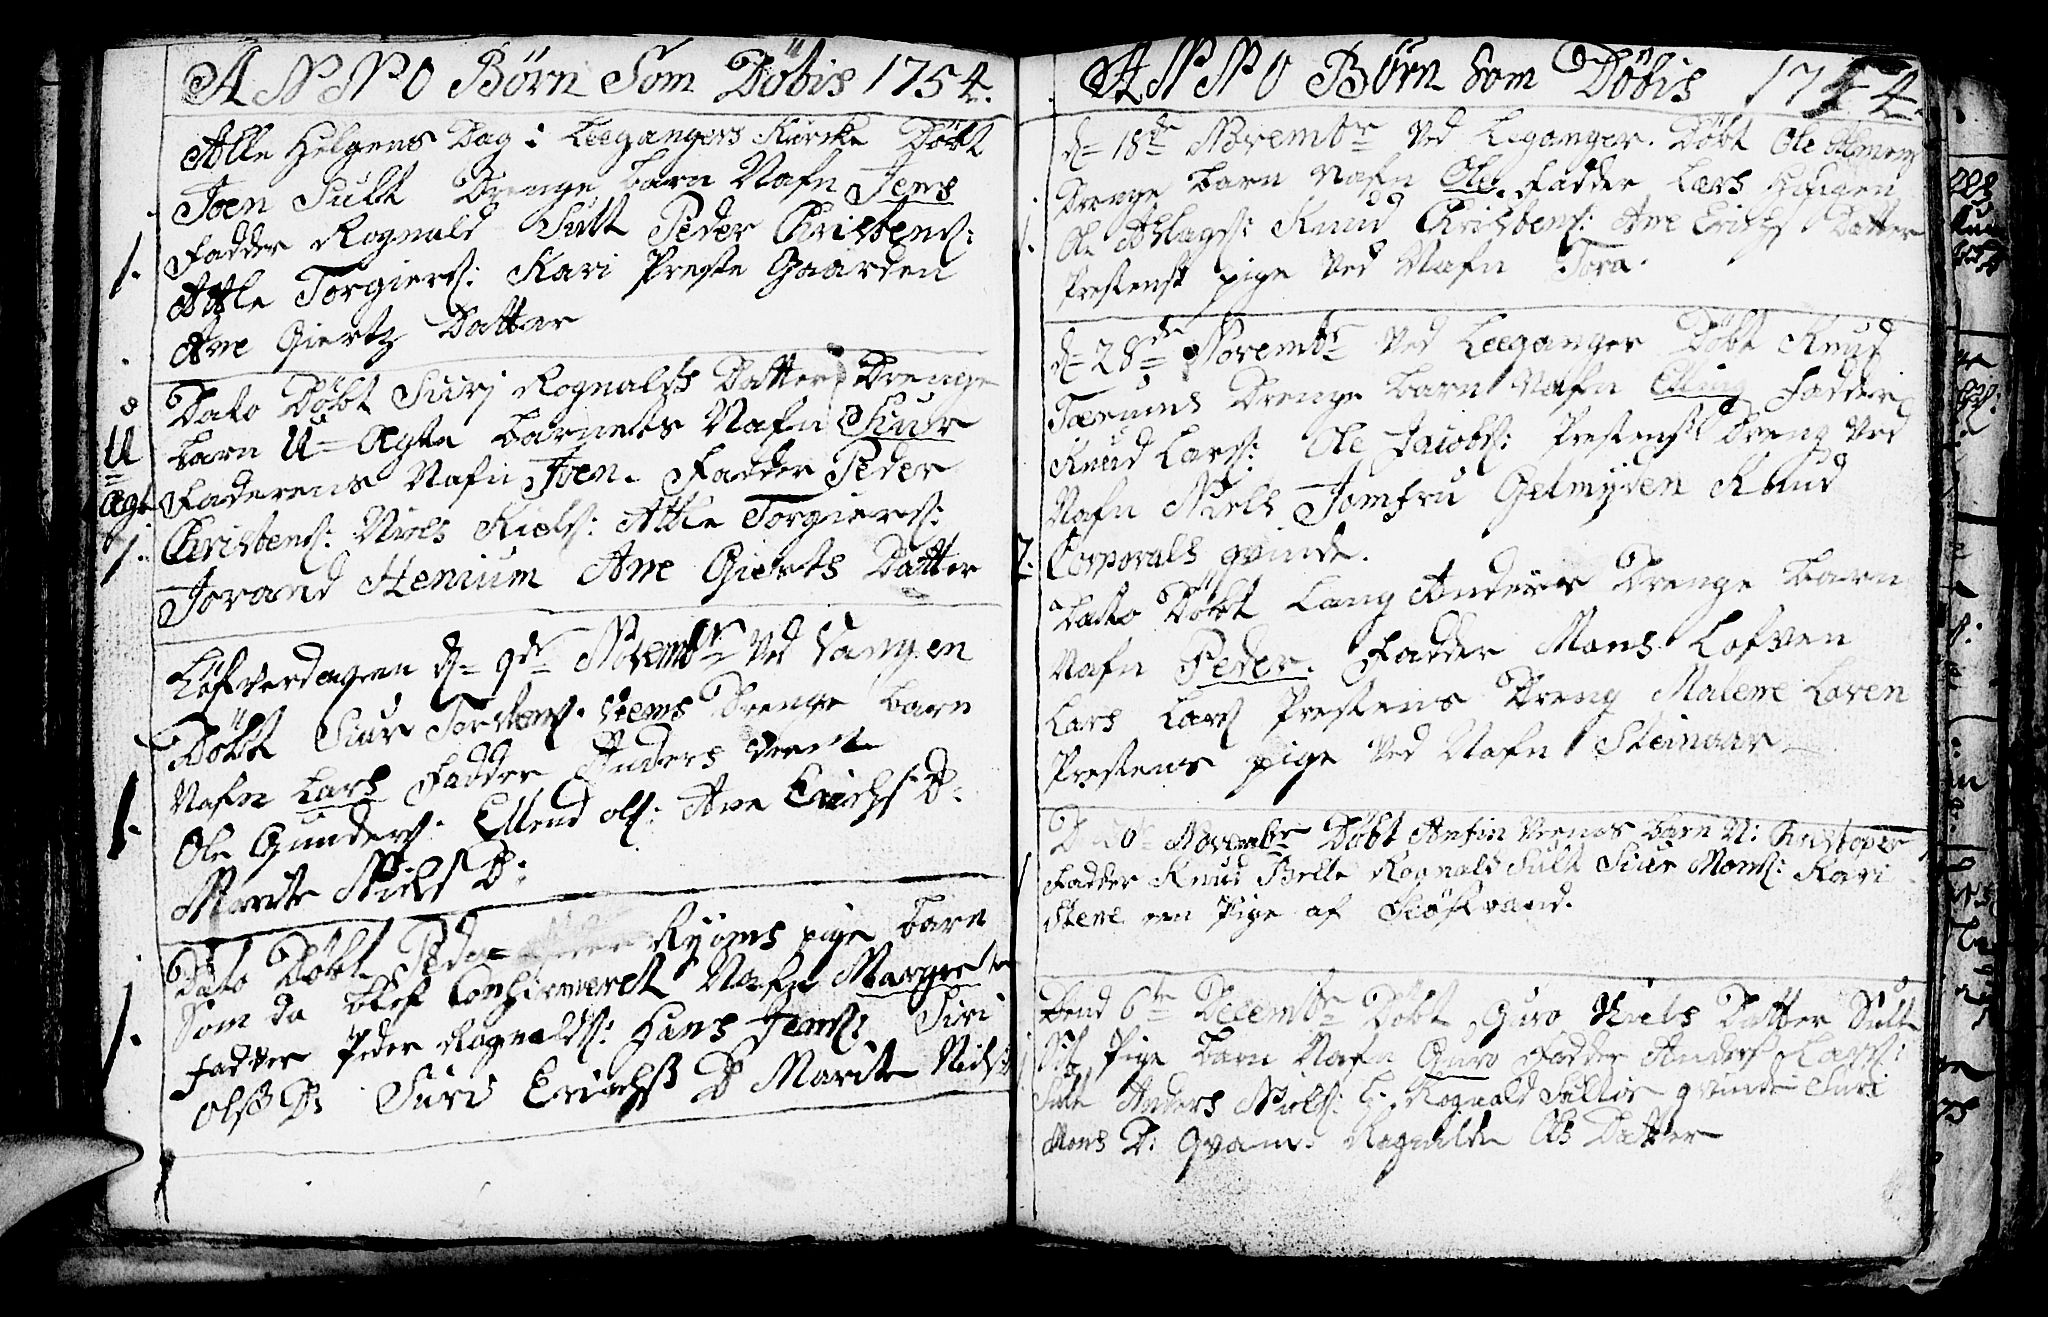 ANNO Børn Som Döbis 1754.
Alle Helgens Dag i Leegangers Kürcke Döbt
Joen Sult Drenge barn Nafn Jens
Fadder Rognald Sült Peder Christens:
Attle Torgiers: Kari Preste Gaarden
Ane Giertz Datter
Dato Döbt Siurj Rognalds Datter Drenge
U barn U=Ægte barnets Nafn Siur
Ægt Faderens Nafn Joen. Fadder Peder
1. Christens: Niels Niels: Attle Torgiers:
Jorand Henium Ane Gierts Datter
Löfverdagen d= 9de Novembr Ved Vangen
Döbt Siur Torstens: Drenge barn
Nafn Lars Fadder Anders
1. Ole Gunders: Ellend ols: Ane Erichs D:
Marite Niels D:
Dato Döbt Peder Ryoms pige barn
Som da blef Confirmeret Nafn Margrete
1. Fadder Peder Rognalds: Hans Jens: Siri
Olss D: Siri Erichss D Marite Niels
ANNO Børn Som Döbis 1754.
d= 18de Novembr Ved Leganger. Döbt Ole
Drenge barn Nafn Ole. Fadder Lars
1. Ole Aslags: Knud Christens: Ane Erichs Datter
Prestens pige Ved Nafn Tora.
d= 28de Novembr Ved Leeganger Döbt Knud
Drenge barn Nafn Elling Fadder
Knud Lars: Ole Jacobs: Prestens Dreng Ved
Nafn Niels Jomfru Gelmyden Knud
2. Corporals qvinde.
Dato Döbt Lang Anders Drenge barn
Nafn Peder. Fadder Mons Lofven
Lars Lars Prestens Dreng Malene Loven
Prestens pige Ved Nafn Steinvor
D 30 Novembr Döbt Anfin barn N: Kristoper
1 Fadder Knud Belle Rognald Sult Siur Mons: Kari
Stene een Pige af
Dend 6te Decembr Döbt Guro Niels Datter Sult
Pige barn Nafn Guro Fadder Anders Lars:
Sult Anders Niels: Rognald Sultes qvinde Siri
Mons D: Qvam Rognilde Ols Datter